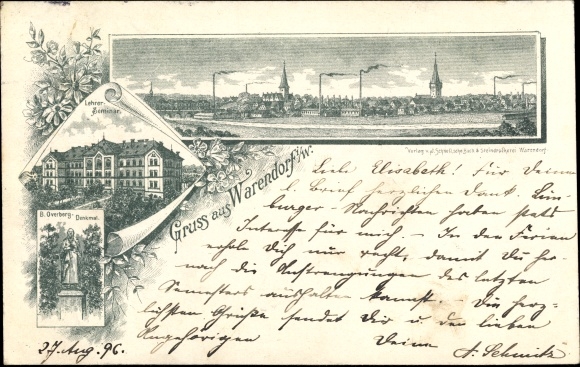 Lehrer-
Seminar.
Verlag v. d. Schnell'sche Buch & Steindruckerei Warendorf.
B. Overberg-Denkmal.
Gruss aus Warendorf i/W.
Liebe Elisabeth! Für Deinen
l. Brief herzlichen Dank. Lim-
burger Nachrichten haben stets
Interesse für mich. – In den Ferien
erhole Dich nur recht, damit Du her-
nach die Anstrengungen des letzten
Semesters aushalten kannst. – Die herz-
lichsten Grüße sendet Dir u. den lieben
Angehörigen Deine A. Schmitz
27. Aug. 96.